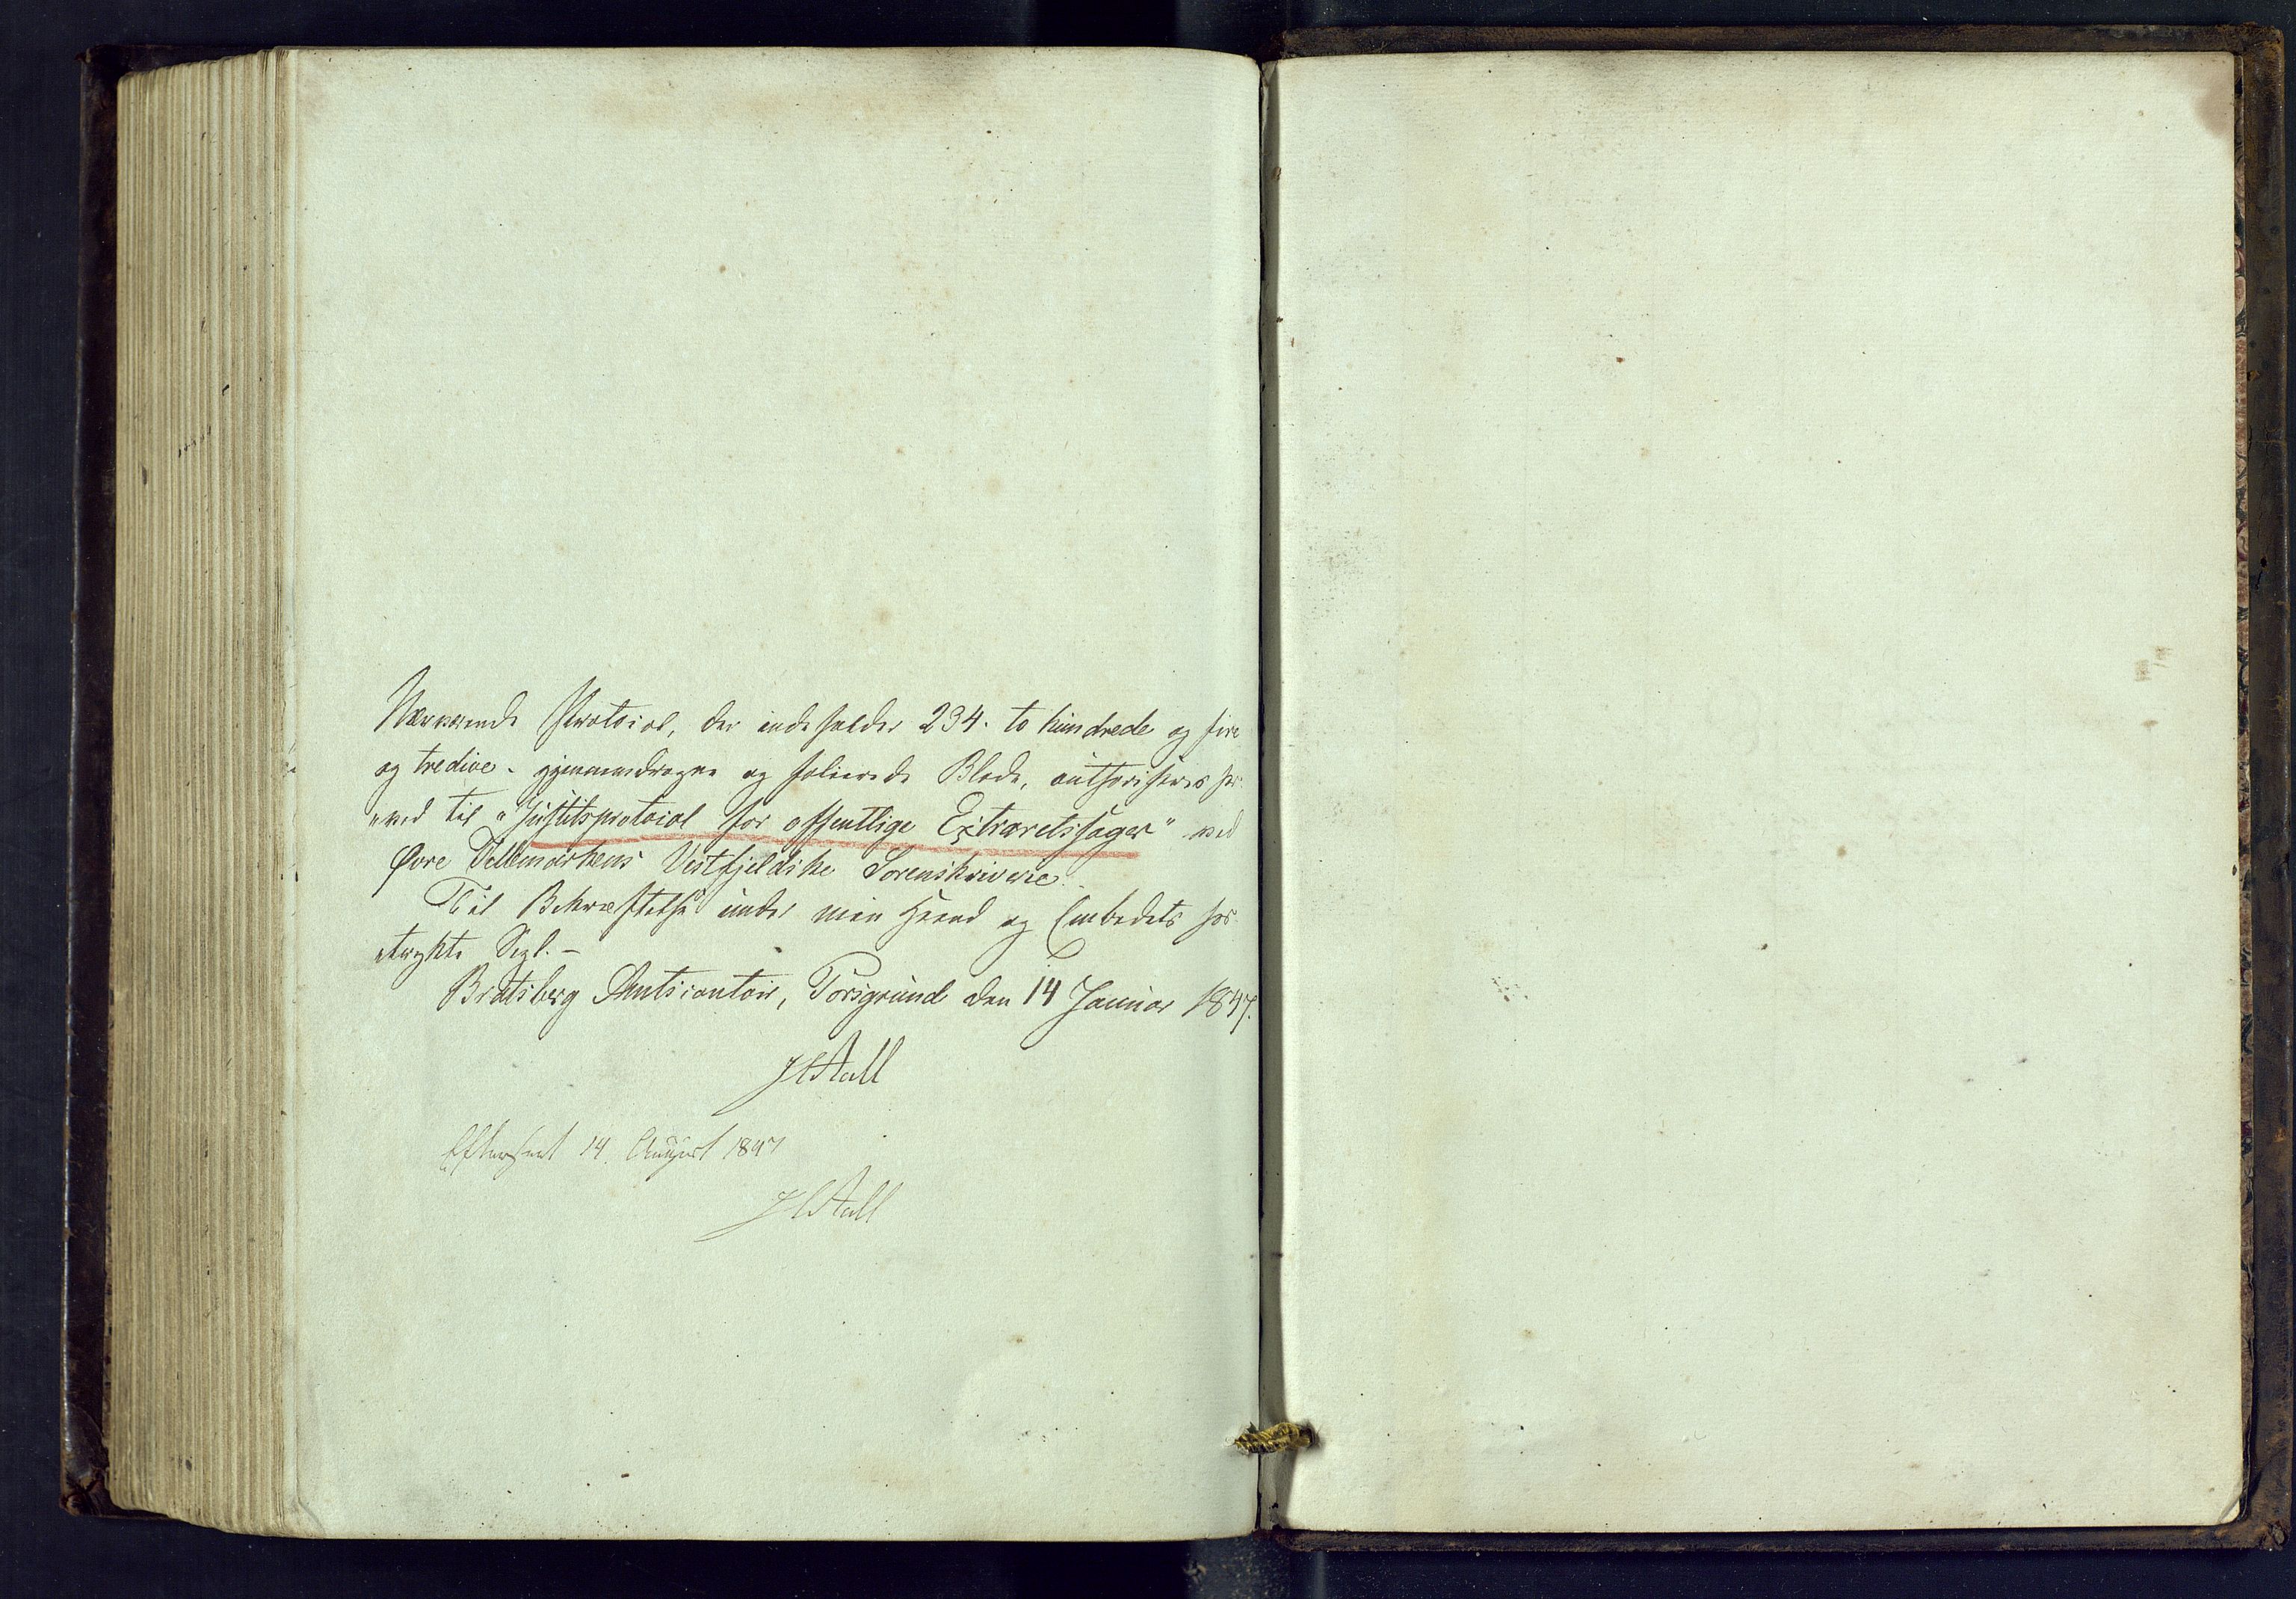 Nærværende Protocol, der indeholder 234. to hundrede og fire
og tredive - gjennemdragne og folierede Blade, authoriseres her-
"ved til "Justitsprotocol for offentlige Extraretssager" ved
Øvre Tellemarkens Vestfjeldske Sorenskriverie.
Til Bekræftelse under min Haand og Embedets hos-
"trykte Segl. -
Bratsberg Amtscontoir, Porsgrund den 14 Januar 1847.
HAall
Efterseet 14. August 1847
HAall